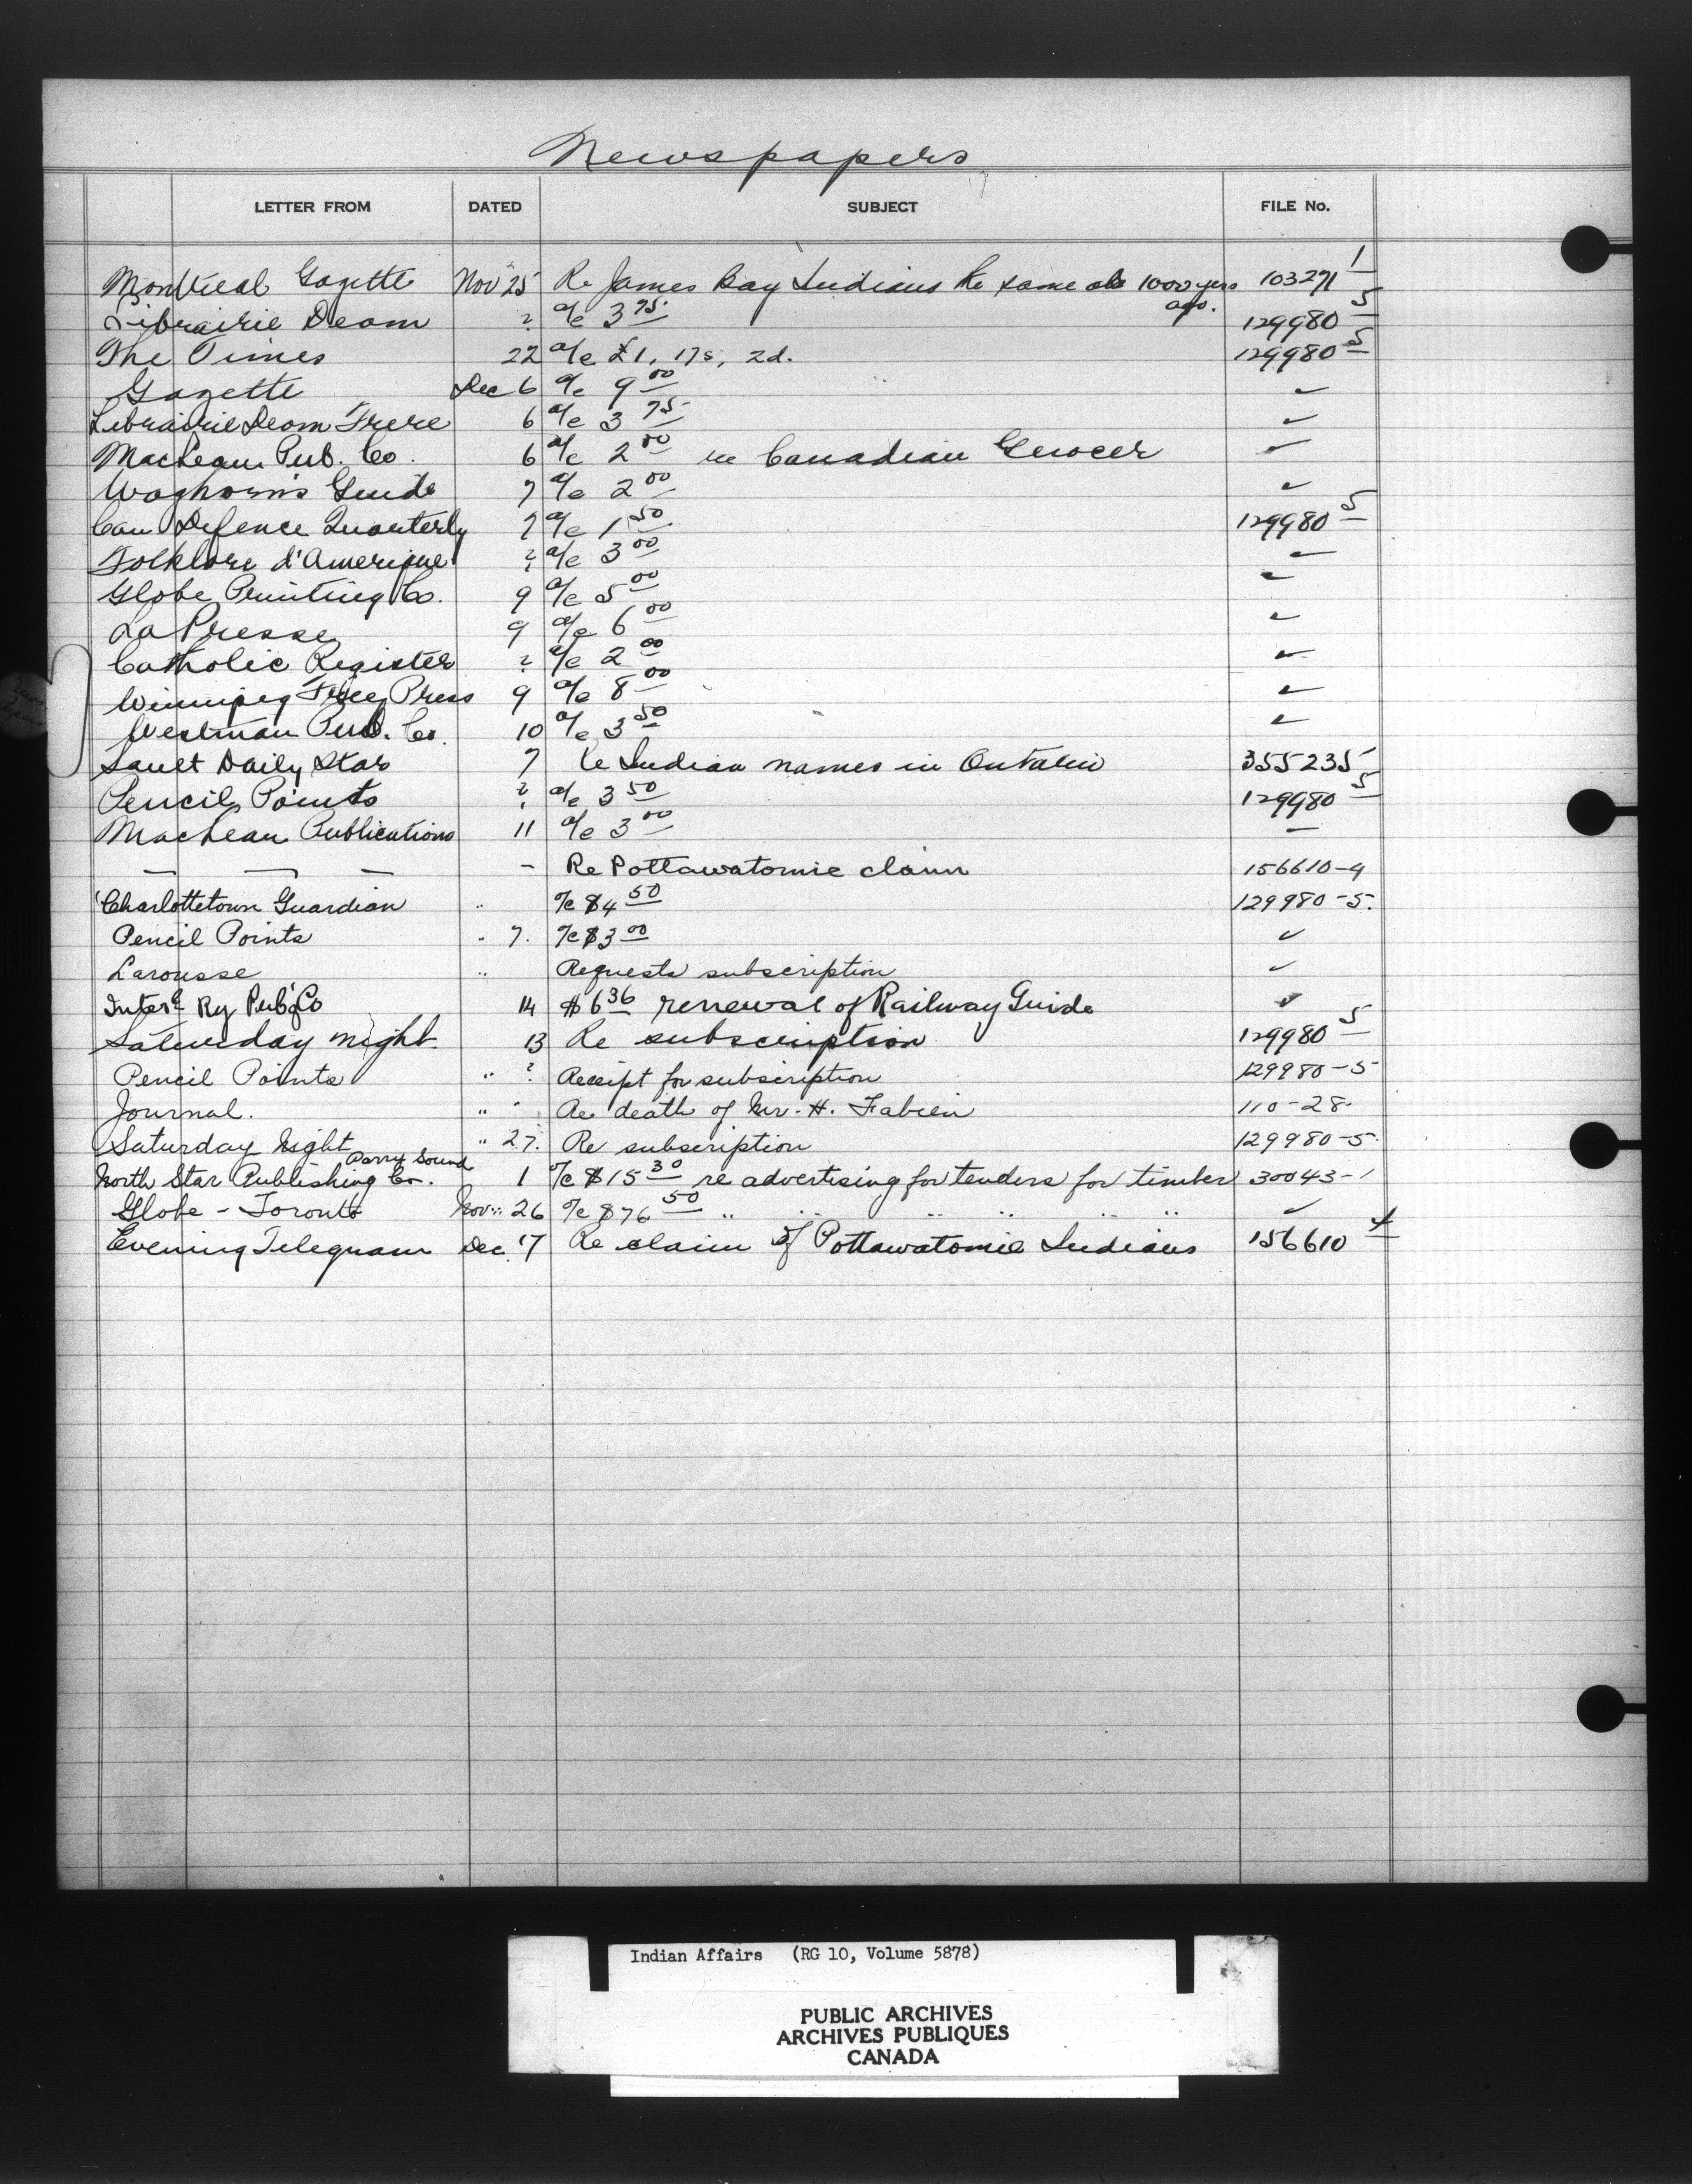 Newspapers
LETTER FROM DATED SUBJECT FILE No.
Montreal Gazette Nov 25 Re James Bay Indians the same as 1000 yrs ago. 103271 1
Librairie Deom ? a/c 3 75 129980 5
The Times 22 a/c £1, 17s, 2d. 129980 5
Gazette Dec 6 a/c 9 00 ✓
Librairie Deom Frere 6 a/c 3 75 ✓
MacLean Pub. Co. 6 a/c 2 00 re Canadian Grocer ✓
Waghorn's Guide 7 a/c 2 00 ✓
Can Defence Quarterly 7 a/c 1 50 129980 5
Folklore d'Amerique ? a/c 3 00 ✓
Globe Printing Co. 9 a/c 5 00 ✓
La Presse 9 a/c 6 00 ✓
Catholic Register ? a/c 2 00 ✓
Winnipeg Free Press 9 a/c 8 00 ✓
Westman Pub. Co. 10 a/c 3 50 ✓
Sault Daily Star 7 Re Indian names in Ontario 355235
Pencil Points ? a/c 3 50 129980 5
MacLean Publications 11 a/c 3 00 —
— — — - Re Pottawatomie claim 156610-4
Charlottetown Guardian " a/c $4 50 129980-5.
Pencil Points " 7. a/c $3 00 ✓
Larousse " Requests subscription ✓
Inter'l Ry Pub'g Co 14 $6 36 renewal of Railway Guide ✓
Saturday Night 13 Re subscription 129980 5
Pencil Points " ? Receipt for subscription 129980-5
Journal. " " Re death of Mr. H. Fabien 110-28.
Saturday Night " 27. Re subscription 129980-5.
North Star Publishing Co. Parry Sound 1 a/c $15 30 re advertising for tenders for timber 30043-1
Globe - Toronto Nov. 26 a/c $76 50 " " " " " ✓
Evening Telegram Dec. 17 Re claim of Pottawatomie Indians 156610 4
Indian Affairs (RG 10, Volume 5878)
PUBLIC ARCHIVES
ARCHIVES PUBLIQUES
CANADA